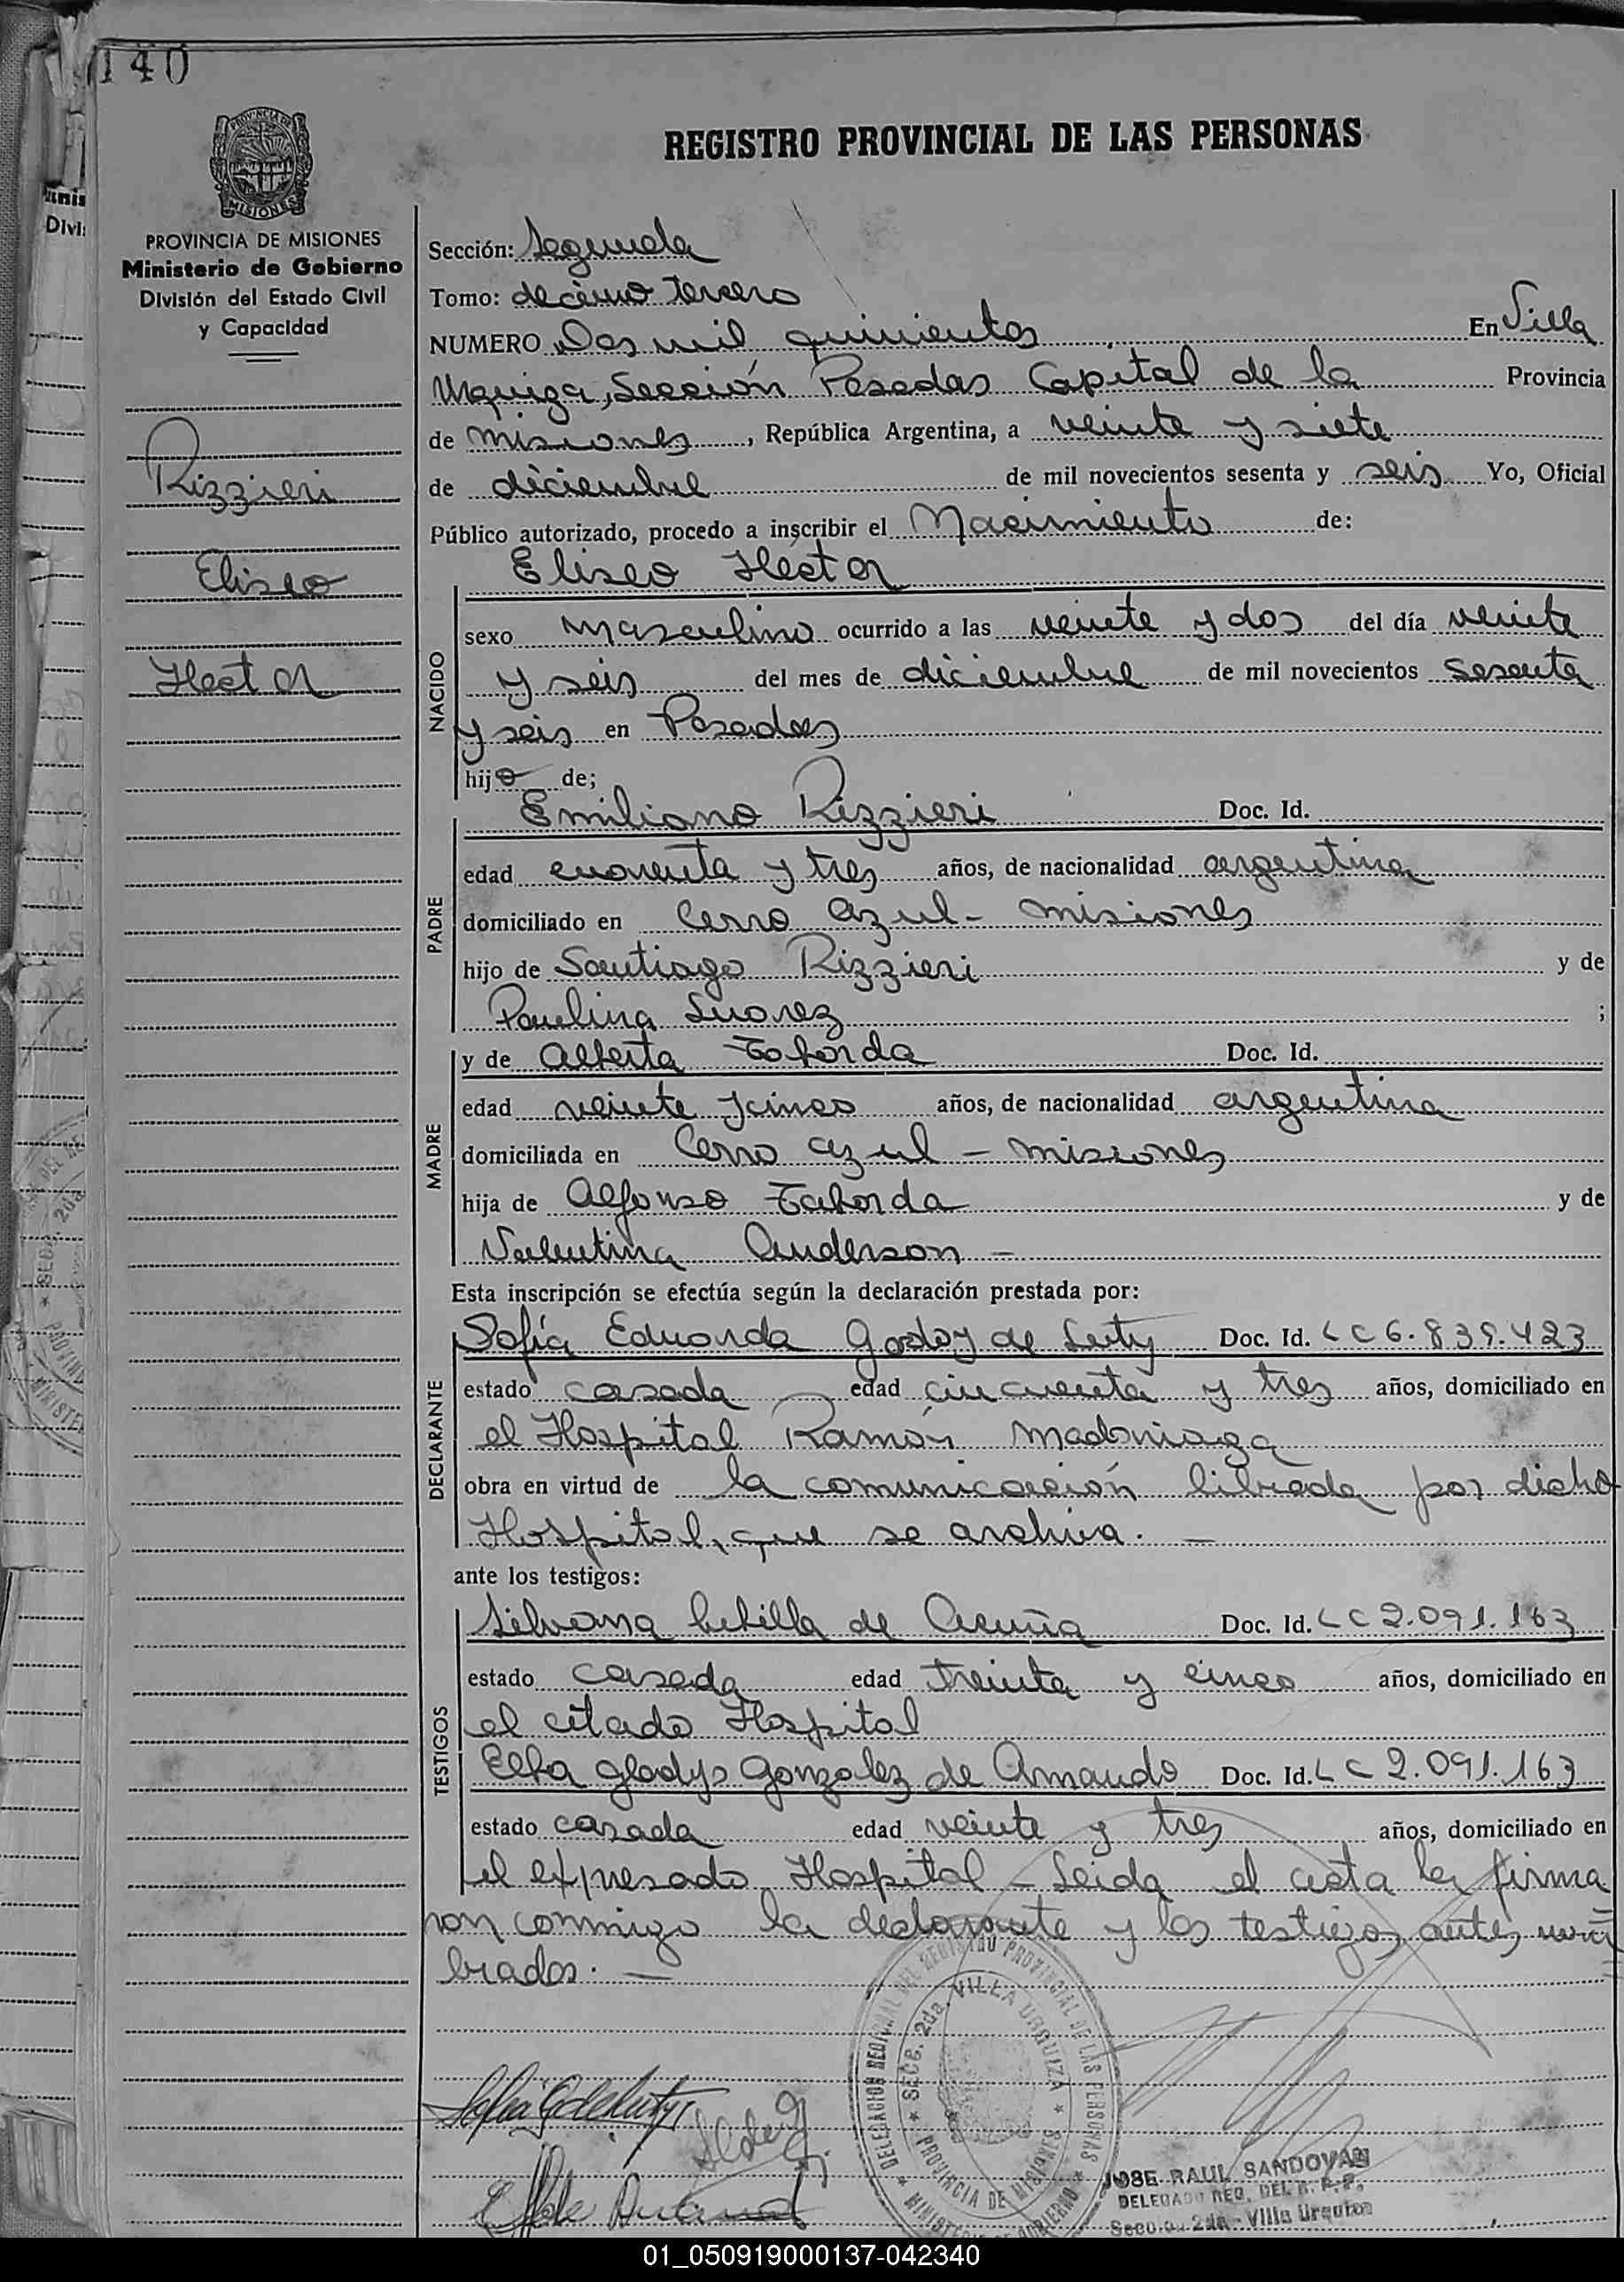 140
REGISTRO PROVINCIAL DE LAS PERSONAS
PROVINCIA DE
MISIONES
PROVINCIA DE MISIONES
Ministerio de Gobierno
División del Estado Civil
y Capacidad
Rizzieri
Eliseo
Hector
Sección: Segunda
Tomo: decimo tercero
NUMERO Dos mil quinientos En Villa
Urquiza, Sección Posadas Capital de la Provincia
de misiones, República Argentina, a veinte y siete
de diciembre de mil novecientos sesenta y seis Yo, Oficial
Público autorizado, procedo a inscribir el Nacimiento de:
Eliseo Héctor
NACIDO
sexo masculino ocurrido a las veinte y dos del día veinte
y seis del mes de diciembre de mil novecientos sesenta
y seis en Posadas
hijo de;
PADRE
Emiliano Rizzieri Doc. Id.
edad cuarenta y tres años, de nacionalidad argentina
domiciliado en Cerro azul - misiones
hijo de Santiago Rizzieri y de
Paulina Suarez ;
MADRE
y de Alberta Taborda Doc. Id.
edad veinte y cinco años, de nacionalidad argentina
domiciliada en Cerro azul - misiones
hija de Alfonso Taborda y de
Valentina Anderson -
Esta inscripción se efectúa según la declaración prestada por:
DECLARANTE
Sofía Eduarda Godoy de Luty Doc. Id. LC 6.839.423
estado casada edad cincuenta y tres años, domiciliado en
el Hospital Ramón Madoriaga
obra en virtud de la comunicación librada por dicho
Hospital, que se archiva. -
ante los testigos:
TESTIGOS
Silvana de Acuña Doc. Id. LC 2.091.163
estado casada edad treinta y cinco años, domiciliado en
el citado Hospital
Elba Gladys Gonzalez de Amando Doc. Id. LC 2.091.163
estado casada edad veinte y tres años, domiciliado en
el expresado Hospital - Leida el acta la firma
ron conmigo la declarante y los testigos antes nom
brados. -
DELEGACION REGIONAL DEL REGISTRO PROVINCIAL DE LAS PERSONAS
SECC. 2da. VILLA URQUIZA
PROVINCIA DE MISIONES
MINISTERIO DE GOBIERNO
JOSE RAUL SANDOVAL
DELEGADO REG. DEL R. P. P.
Sección 2da - Villa Urquiza
01_050919000137-042340